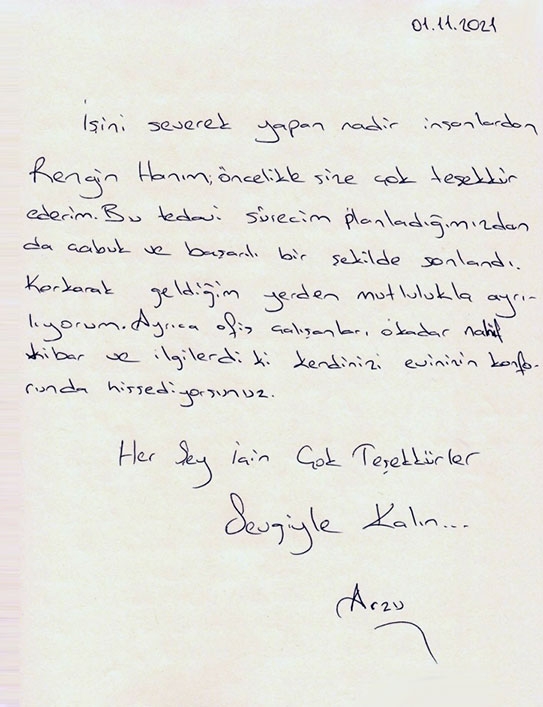 01.11.2021
İşini severek yapan nadir insanlardan
Rengin Hanım; öncelikle size çok teşekkür
ederim. Bu tedavi sürecim planladığımızdan
da çabuk ve başarılı bir şekilde sonlandı.
Korkarak geldiğim yerden mutlulukla ayrı-
lıyorum. Ayrıca ofis çalışanları, okadar nahif
kibar ve ilgilerdi ki kendinizi evinizin konfo-
runda hissediyorsunuz.
Her Şey İçin Çok Teşekkürler
Sevgiyle Kalın...
Arzu